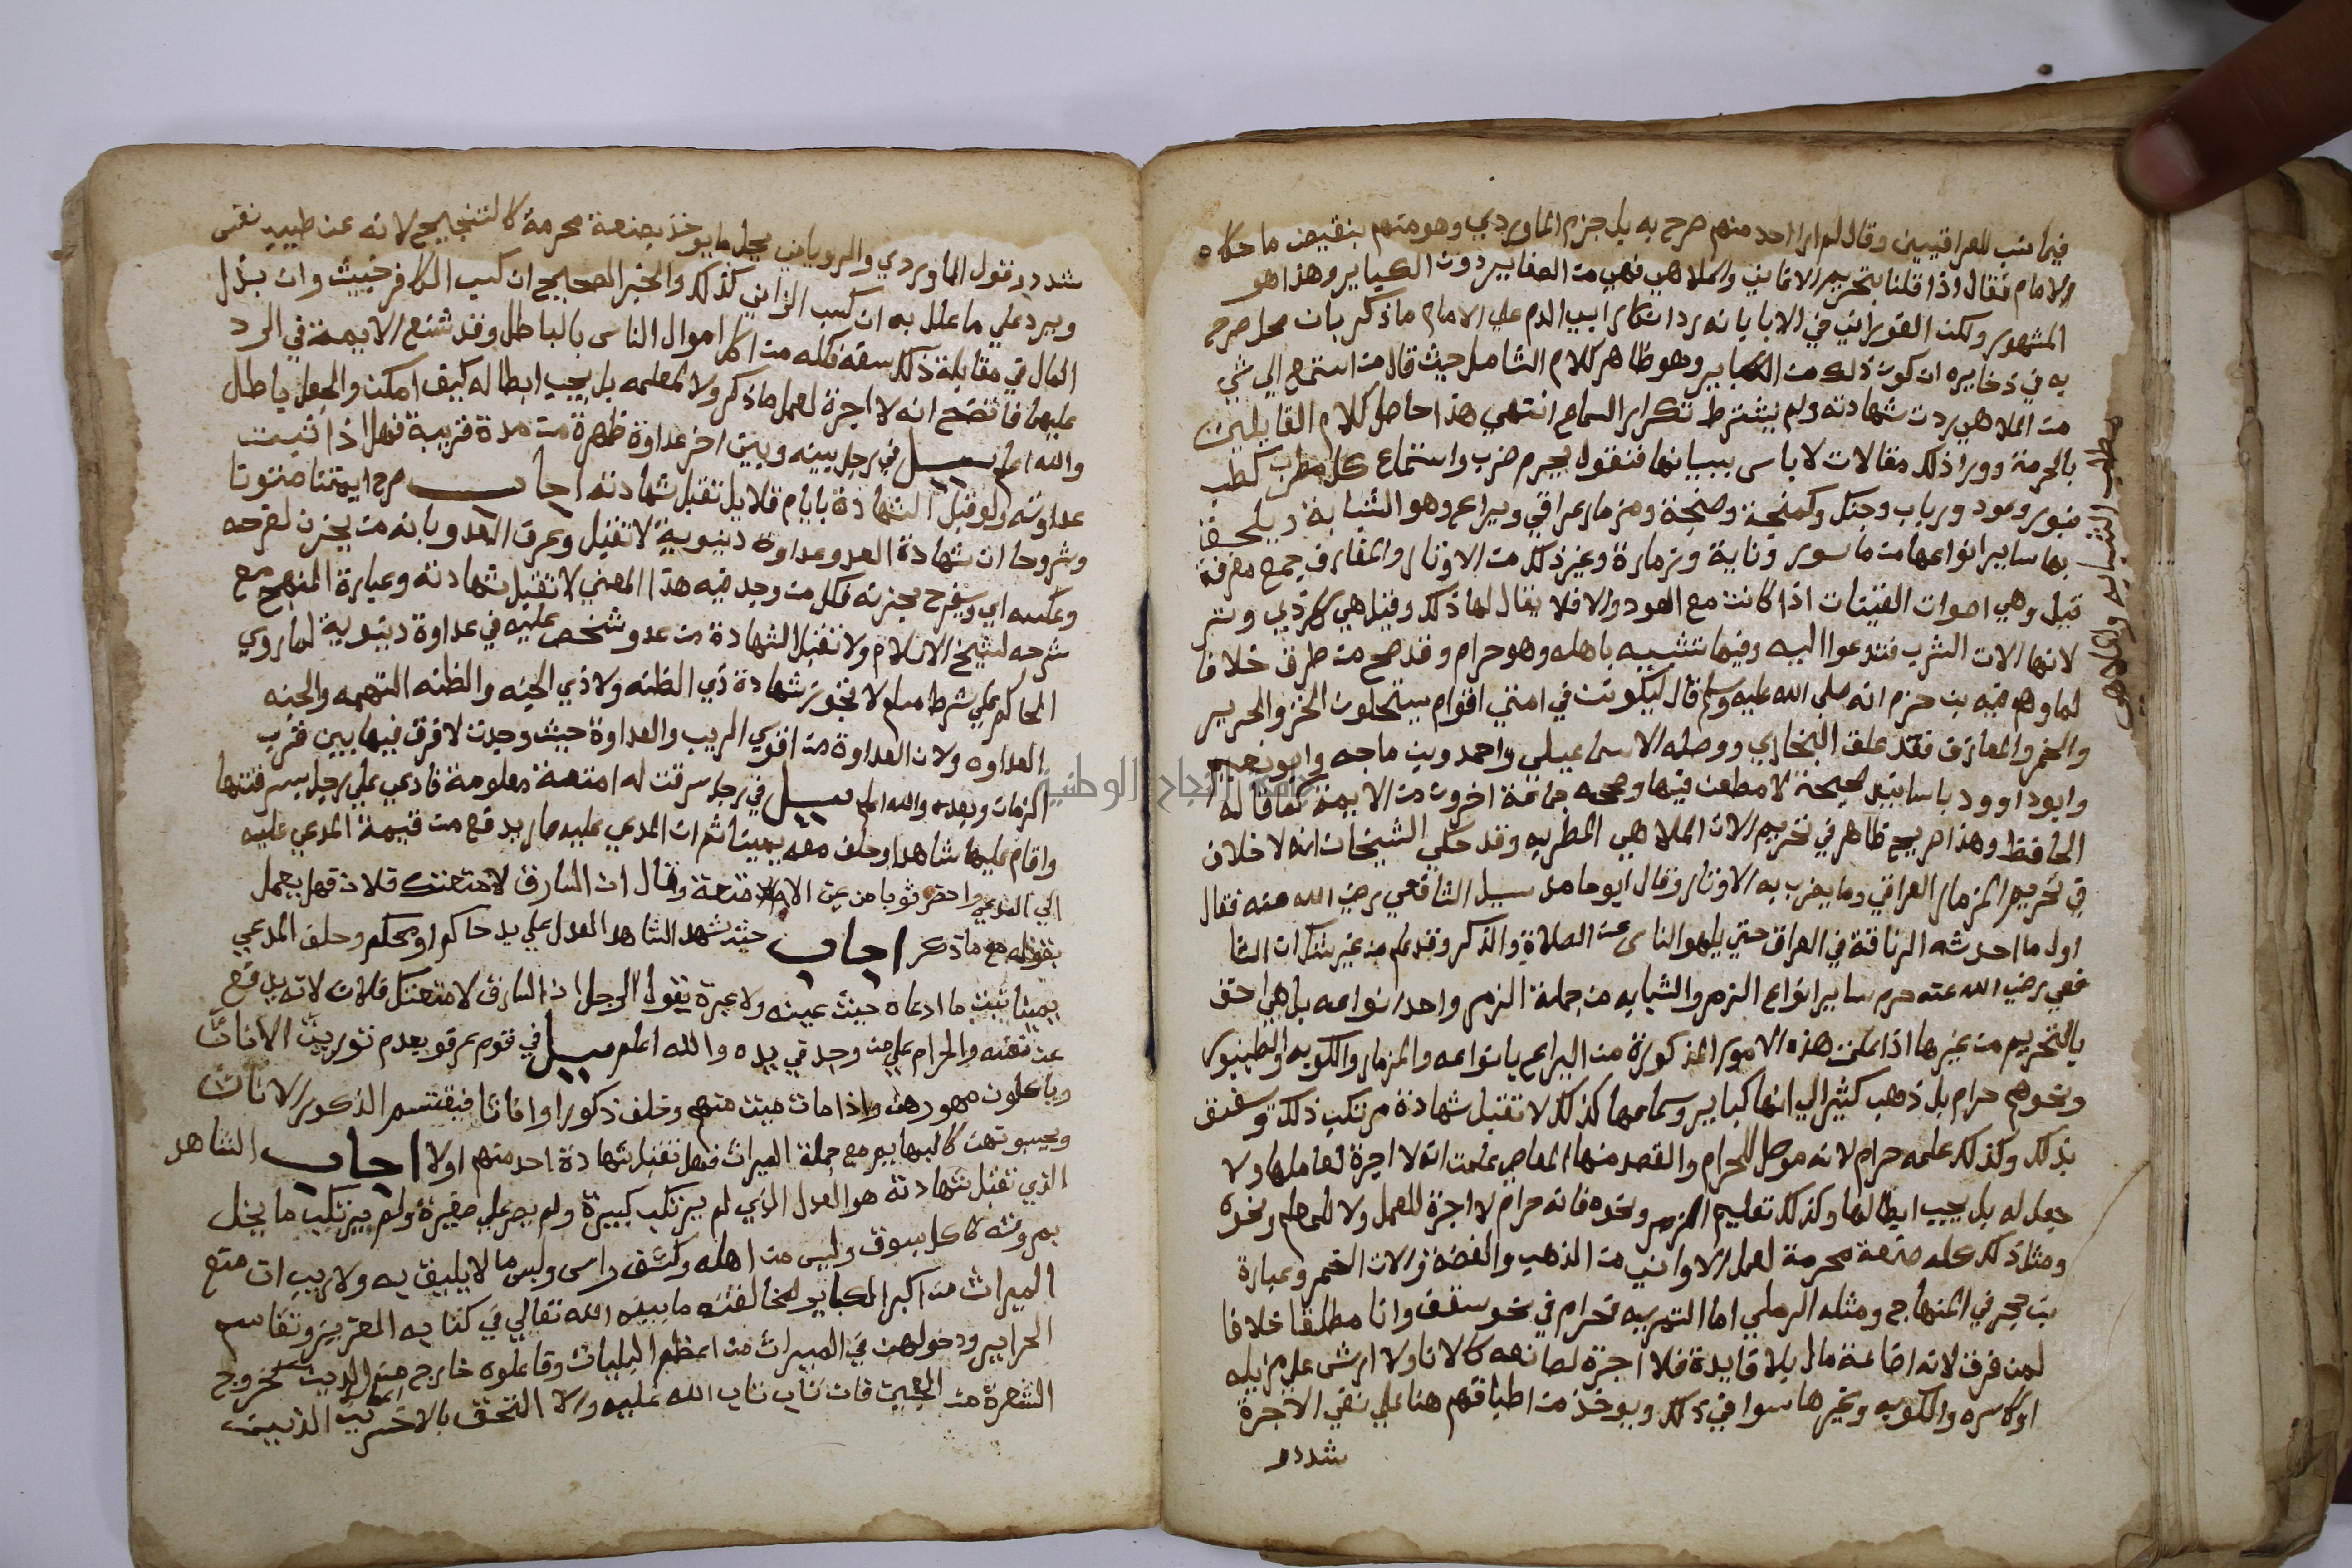 فيما نسب للعراقيين وقال لم ار احد منهم صرح به بل جزم الماوردي وهو منهم بنقيض ما حكاه
الامام فقال اذا قلنا بتحريم الاغاني والملاهي فهي من الصغاير دون الكباير وهذا هو
المشهور ولكن الفوراني في الابانة رد انكار ابي الدم علي الامام ما ذكر بان محل صرح
به في ذخايره ان كون ذلك من الكباير وهو ظاهر كلام الشامل حيث قال من استمع الي شي
من الملاهي ردت شهادته ولم يشترط تكرار السماع انتهي هذا حاصل كلام القايلين
بالحرمة وورا ذلك مقالات لا باس ببيانها فنقول يحرم ضرب واستماع كل مطرب كطنـ
ـبور وعود ورباب وجنك وكمنجة وصنجة ومزمار عراقي ويراع وهو الشبابة ويلحق
بها ساير انواعها من ماسور وناية وزمارة وغير ذلك من الاوتار والمعازف جمع معزفة
قيل وهي اصوات القينات اذا كانت مع العود والا فلا يقال لها ذلك وقيل هي كل ذي وتر
لانها الات الشرب فتدعوا اليه وفيها تشبيه باهله وهو حرام وقد صح من طرق خلافا
لما وهم فيه بن حزم انه صلي الله عليه وسلم قال ليكونن في امتي اقوام يستحلون الخز والحرير
والخمر والمعازف فقد علق البخاري ووصله الاسماعيلي واحمد وبن ماجه وابو نعيم
وابو داوود باسانيد صحيحة لا مطعن فيها وصححه جماعة اخرون من الايمة كما قاله
الحافظ وهذا صريح ظاهر في تحريم الات الملاهي المطربه وقد حكي الشيخان انه لا خلاف
في تحريم المزمار العراقي وما يضرب به الاوتار وقال ابو حامد سيل الشافعي رضي الله عنه فقال
اول ما احدثه الزنادقة في العراق حتي يلهو الناس عن الصلاة والذكر وقد علم من غير نكران الشا
فعي رضي الله عنه حرم ساير انواع الزمر والشبابه من جملة الزمر واحد انواعه بل هي احق
بالتحريم من غيرها اذا علمت هذه الامور المذكورة من اليراع بانواعه والمزمار والكوبه والطنبور
ونحوهم حرام بل ذهب كثير الي انها كباير وسماعها كذلك لا تقبل شهادة مرتكب ذلك وفسق
بذلك وكذلك علمه حرام لانه موصل للحرام والقصد منها المعاصي علمت انه لا اجرة لعاملها ولا
جعل له بل يجب ابطالها وكذلك تعليم الزمر ونحوه فانه حرام لا اجرة للعمل ولا للمعلم ونحوه
ومثل ذلك كله صنعة محرمة لعمل الاواني من الذهب والفضة والات الخمر وعبارة
بن حجر في المنهاج ومثله الرملي اما التمويه فحرام في نحو سقف وانا مطلقا خلافا
لمن فرق لانه اضاعة مال بلا فايدة فلا اجرة لصانعه كالانا ولا ارش علي مزيله
او كاسره والكوبه وغيرها سوا في ذلك ويوخذ من اطباقهم هنا علي نفي الاجرة
شددو
مطلب الشبابه والملاهي
شددو فقول الماوردي والروياني يحل ما يوخذ بصنعة محرمة كالتنجيم لانه عن طيب نفس
ويرد علي ما علل به ان كسب الزاني كذلك والخبر الصحيح ان كسب الكافر خبيث وان بذل
المال في مقابلة ذلك سفه فكله من اكل اموال الناس بالباطل وقد شنع الايمة في الرد
عليهما فاتضح انه لا اجرة لعمل ما ذكر ولا لمعلمه بل يجب ابطاله كيف امكن والجعل باطل
والله اعلم سيل في رجل بينه وبين اخر عداوة ظهرة من مدة قريبة فهل اذا ثبت
عداوته ولو قبل الشهادة بايام قلايل تقبل شهادته اجاب صرح ايمتنا متونا
وشروحا ان شهادة العدو عداوة دنيوية لا تقبل وعرف العدو بانه من يحزن لفرحه
وعكسه اي ويفرح بحزنه فكل من وجد فيه هذا المعني لا تقبل شهادته وعبارة المنهج مع
شرحه لشيخ الاسلام ولا تقبل الشهادة من عدو شخص عليه في عداوة دنيوية لما روي
الحاكم علي شرط مسلم لا تجوز شهادة ذي الظنه ولا ذي الحنه والظنه التهمه والحنه
العداوه ولان العداوة من اقوي الريب والعداوة حيث وجدت لا فرق فيها بين قرب
الزمان وبعده والله اعلم سيل في رجل سرقت له امتعة معلومة فادعي علي رجل بسرقتها
واقام عليها شاهدا وحلف معه يمينا ثم ان المدعي عليه صار يدفع من قيمة المدعي عليه
الي المدعي واحضر ثوبا من عين الامتعة وقال ان السارق لامتعتك فلان فهل يعمل
بقوله مع ما ذكر اجاب حيث شهد الشاهد العدل علي يد حاكم او محكم وحلف المدعي
يمينا ثبت ما ادعاه حيث عينه ولا عبرة بقول الرجل ان السارق لامتعتك فلان لانه يدفع
عن نفسه والحرام علي من وجد في يده والله اعلم سيل في قوم عرفو بعدم توريث الاناث
وياكلون مهورهن واذا مات ميت منهم وخلف ذكورا واناثا فيقتسم الذكور الاناث
ويحسبونهن كالبهايم مع جملة الميراث فهل تقبل شهادة احد منهم اولا اجاب الشاهد
الذي تقبل شهادته هو العدل الذي لم يرتكب كبيرة ولم يصر علي صغيرة ولم يرتكب ما يخل
بمروته كاكل بسوق وليس من اهله وكشف راس ولبس ما لا يليق به ولا ريب ان منع
الميراث من اكبر الكباير لمخالفته ما بينه الله تعالي في كتابه العزيز وتقاسم
الحراير ودخولهن في الميراث من اعظم البليات وفاعلوه خارج من الدين كخروج
الشعرة من العجين فان تاب تاب الله عليه والا التحق بالاخسرين الذين